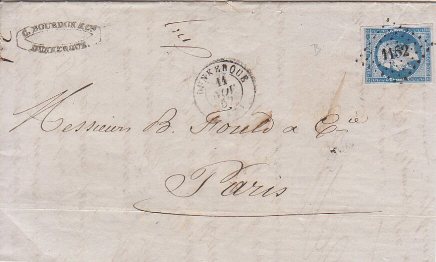 C. BOURDON & Cie
DUNKERQUE.
1182
DUNKERQUE
11
57
Messieurs B. Fould & Cie
Paris